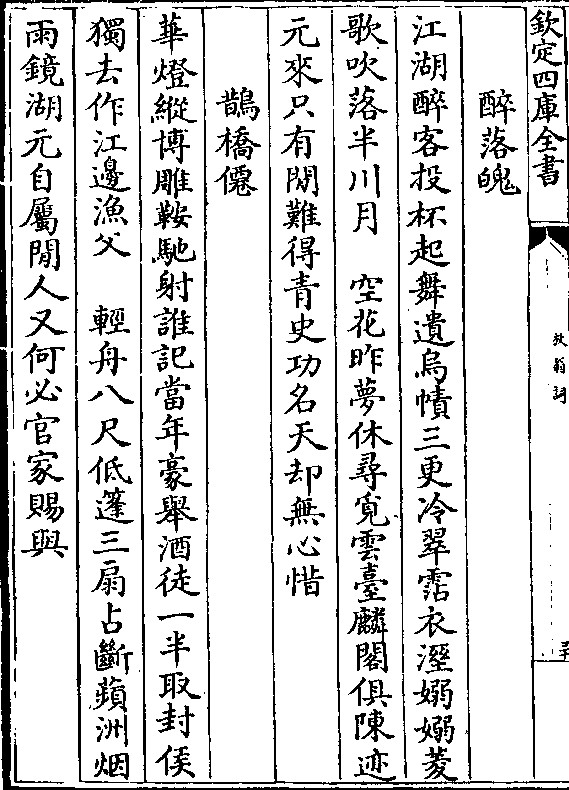 欽定四庫全書
放翁詞
醉落魄
江湖醉客投杯起舞遺烏幘三更冷翠霑衣溼嫋嫋菱
歌吹落半川月　空花昨夢休尋覓雲臺麟閣俱陳迹
元來只有閒難得青史功名天却無心惜
鵲橋僊
華燈縱博雕鞍馳射誰記當年豪舉酒徒一半取封侯
獨去作江邊漁父　輕舟八尺低篷三扇占斷蘋洲烟
雨鏡湖元自屬閒人又何必官家賜與